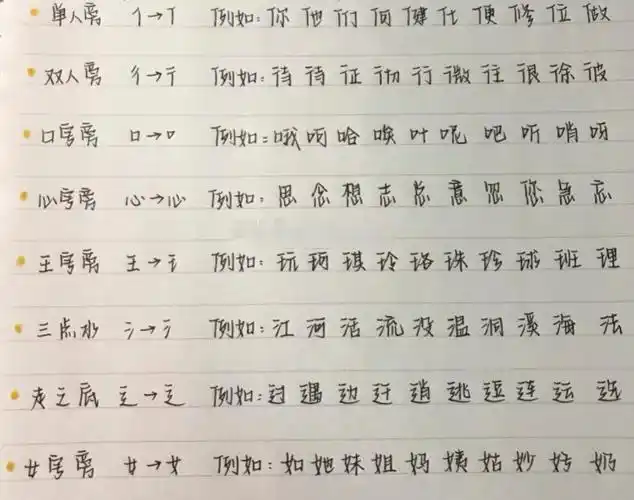 单人旁 亻→亻 例如:你他们何健仕便修位做
双人旁 彳→彳 例如:待待征彻行微往很徐彼
口字旁 口→口 例如:哦呵哈唉叶呢吧听哨呀
心字旁 心→心 例如:思念想志总意忽您急忘
王字旁 王→王 例如:玩珂琪玲珞珠珍球班理
三点水 氵→氵 例如:江河活流没温洞溪海法
走之底 辶→辶 例如:过遇边迁逍逃逗连运选
女字旁 女→女 例如:如她妹姐妈姨姑妙奶